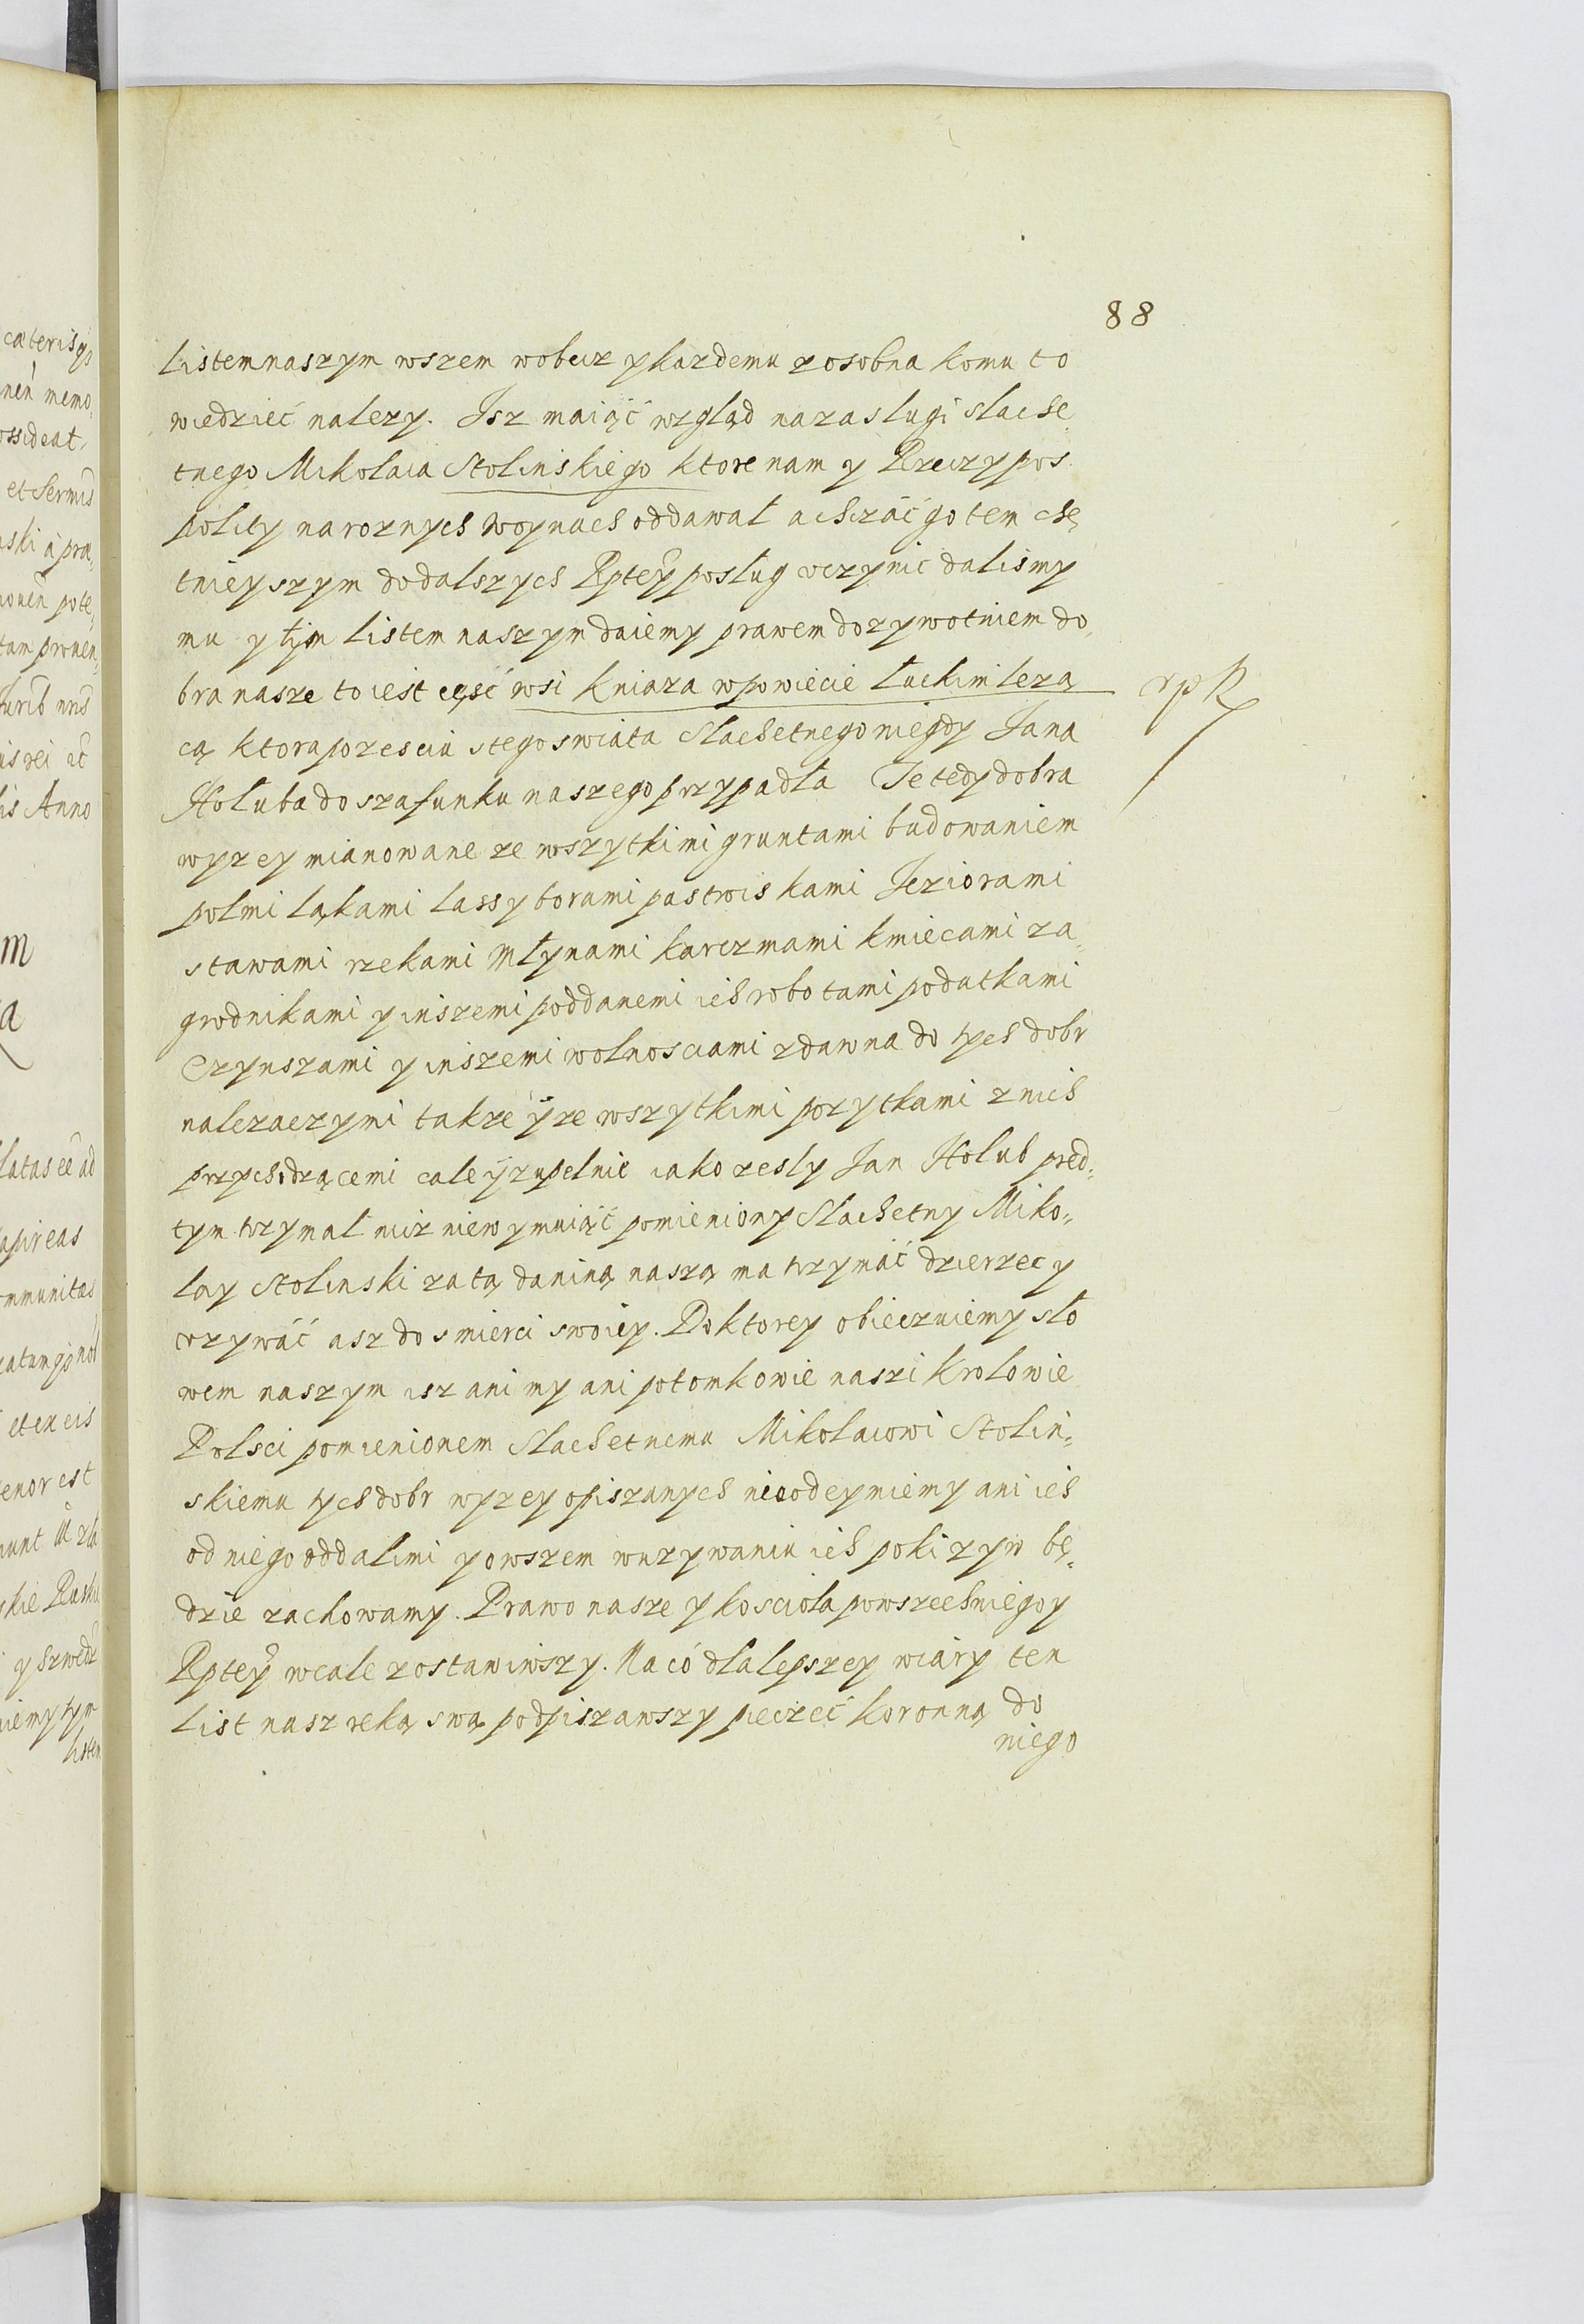 88
listem naszym wszem wobecz y kazdemu zosobna komu to
wiedzieć nalezy. Isz maiąć wzgląd na zaslugi slache
tnego Mikolaia Stolinskiego ktore nam y Rzeczypos
politty na roznych woynach oddawał a chczać go tem chę
tnieyszym do dalszych Rptey posług uczynic dalismy
mu y tym listem naszym daiemy prawem dozywotniem do
bra nasze to iest cęsć wsi kniaza w powiecie Łuckim leza
cą ktora po zesciu stego swiata slachetnego niegdy Jana
Hołuba do szafunku naszego przypadła Te tedy dobra
wyzey mianowane ze wszytkimi gruntami budowaniem
polmi ląkami lassy borami pastwiskami Jeziorami
stawami rzekami młynami karczmami kmiecami za
grodnikami y inszemi poddanemi ich robotami podatkami
Czynszami y inszemi wolnosciami zdawna do tych dobr
nalezaczymi takze y ze wszytkimi pozytkami znich
przychodzącemi cale y zupelnie iako zesly Jan Holub pred-
tym trzymał nicz niewymuiąć pomieniony slachetny Miko-
lay Stolinski za tą daniną naszą ma trzymáć dzierzec y
vzywáć asz do smierci swoiey. Do ktorey obiecuiemy sło
wem naszym isz ani my ani potomkowie naszi krolowie
Polsci pomienionem slachetnemu Mikolaiowi Stolin-
skiemu tych dobr wyzey opiszanych nieodeymiemy ani ich
od niego oddalimi y owszem w uzywaniu ich poki zyw bę-
dzie zachowamy. Prawo nasze y kosciola powszechniego y
Rptey wcale zostawiwszy. Na có dla lepszey wiáry ten
list nasz reką swą podpiszawszy pieczec koronną do
niego